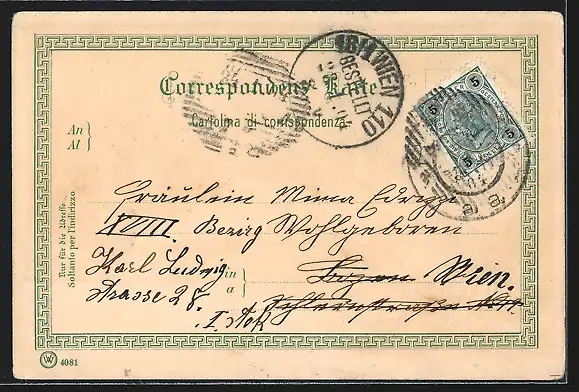 18/1 WIEN 110
BESTELLT
Correspondenz-Karte
Cartolina di corrispondenza.
5 5
5 5
An
Al
Nur für die Adresse
Soltanto per l'indirizzo
Fräulein Mima
XVIII. Bezirg Wohlgeboren
Karl Ludwig in Bozen Wien.
Strasse 28. a
I. Stok
W 4081